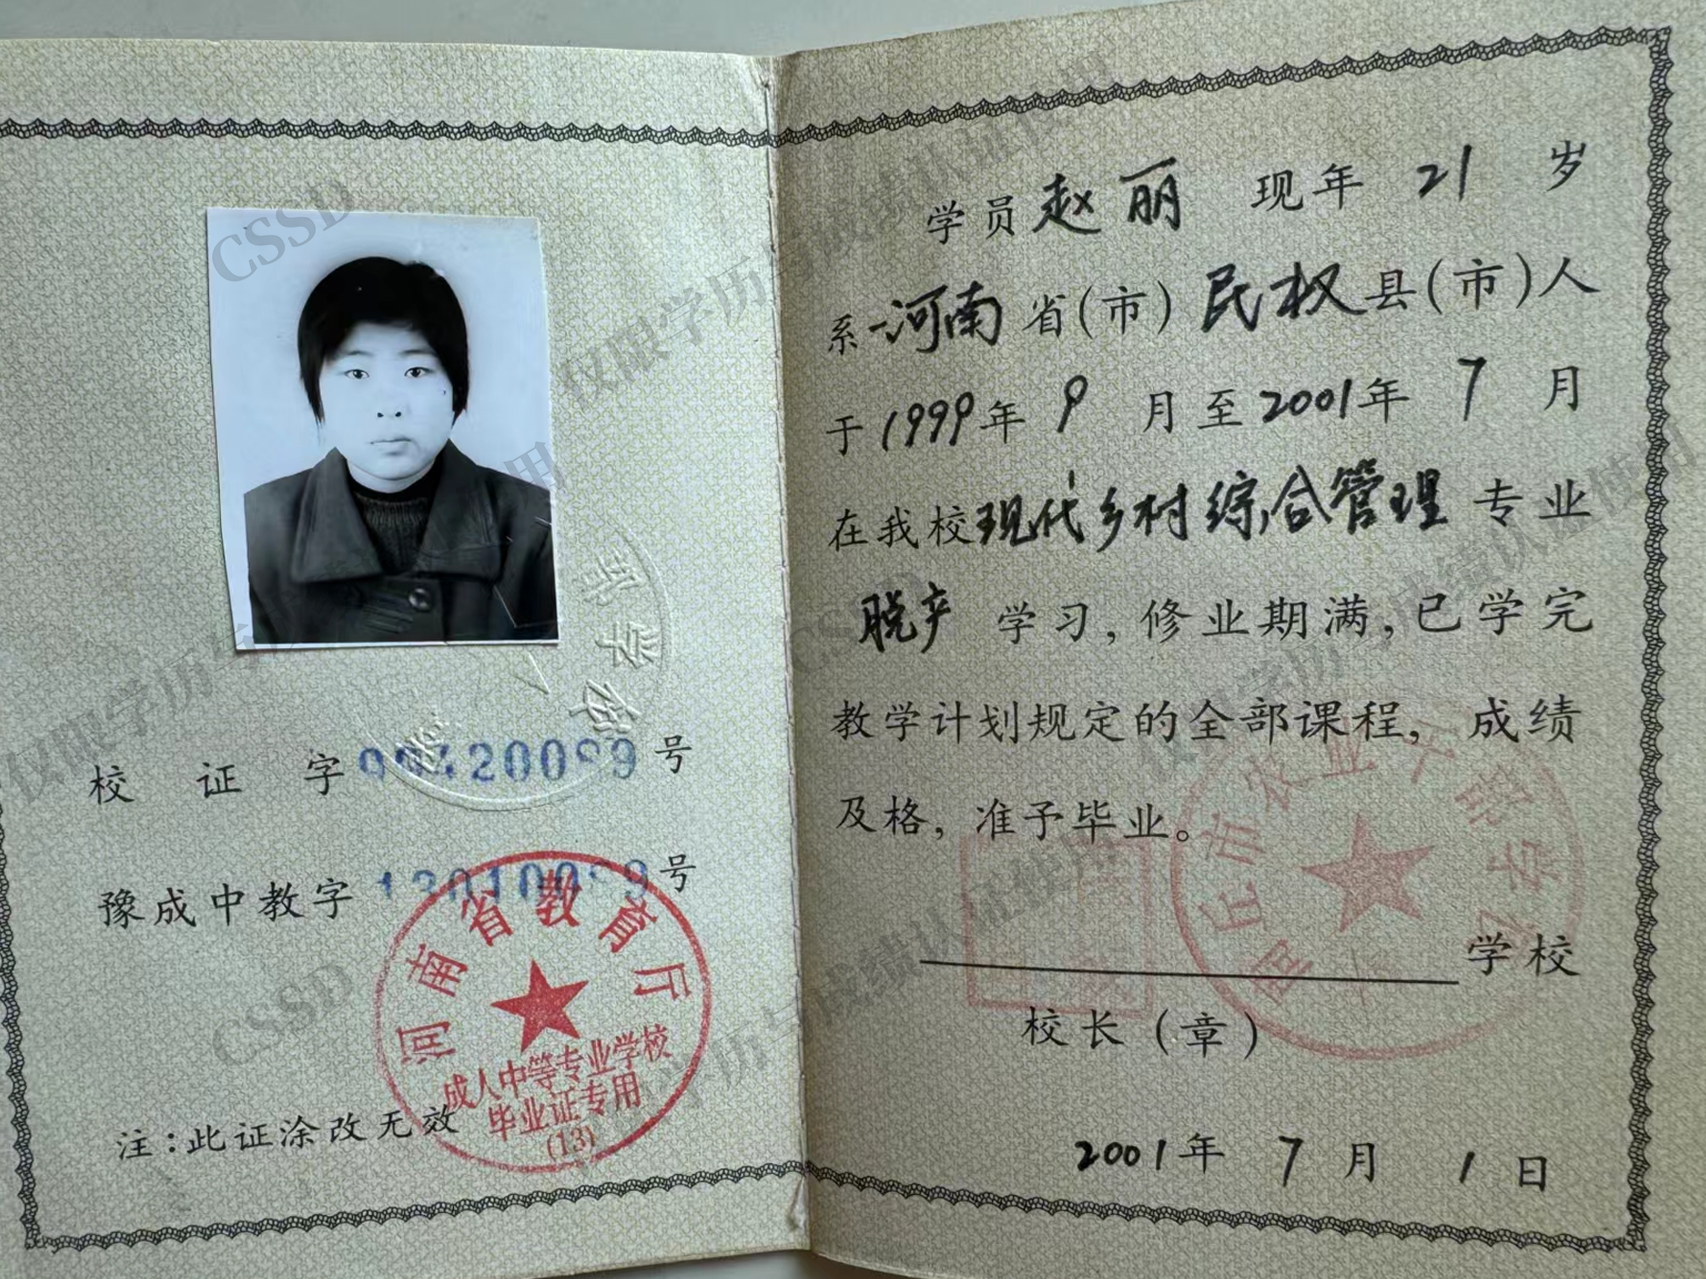 校证字99420089号
豫成中教字13010089号
河南省教育厅
成人中等专业学校
毕业证专用
(13)
注:此证涂改无效
学员赵丽 现年 21 岁
系 河南省(市)民权县(市)人
于1999年 9 月至2001年 7 月
在我校现代乡村综合管理专业
脱产 学习,修业期满,已学完
教学计划规定的全部课程,成绩
及格,准予毕业。
商丘市农业中等专业学校
学校
校长(章)
2001年 7 月 1 日
CSSD
CSSD
CSSD
仅限学历与成绩认证使用